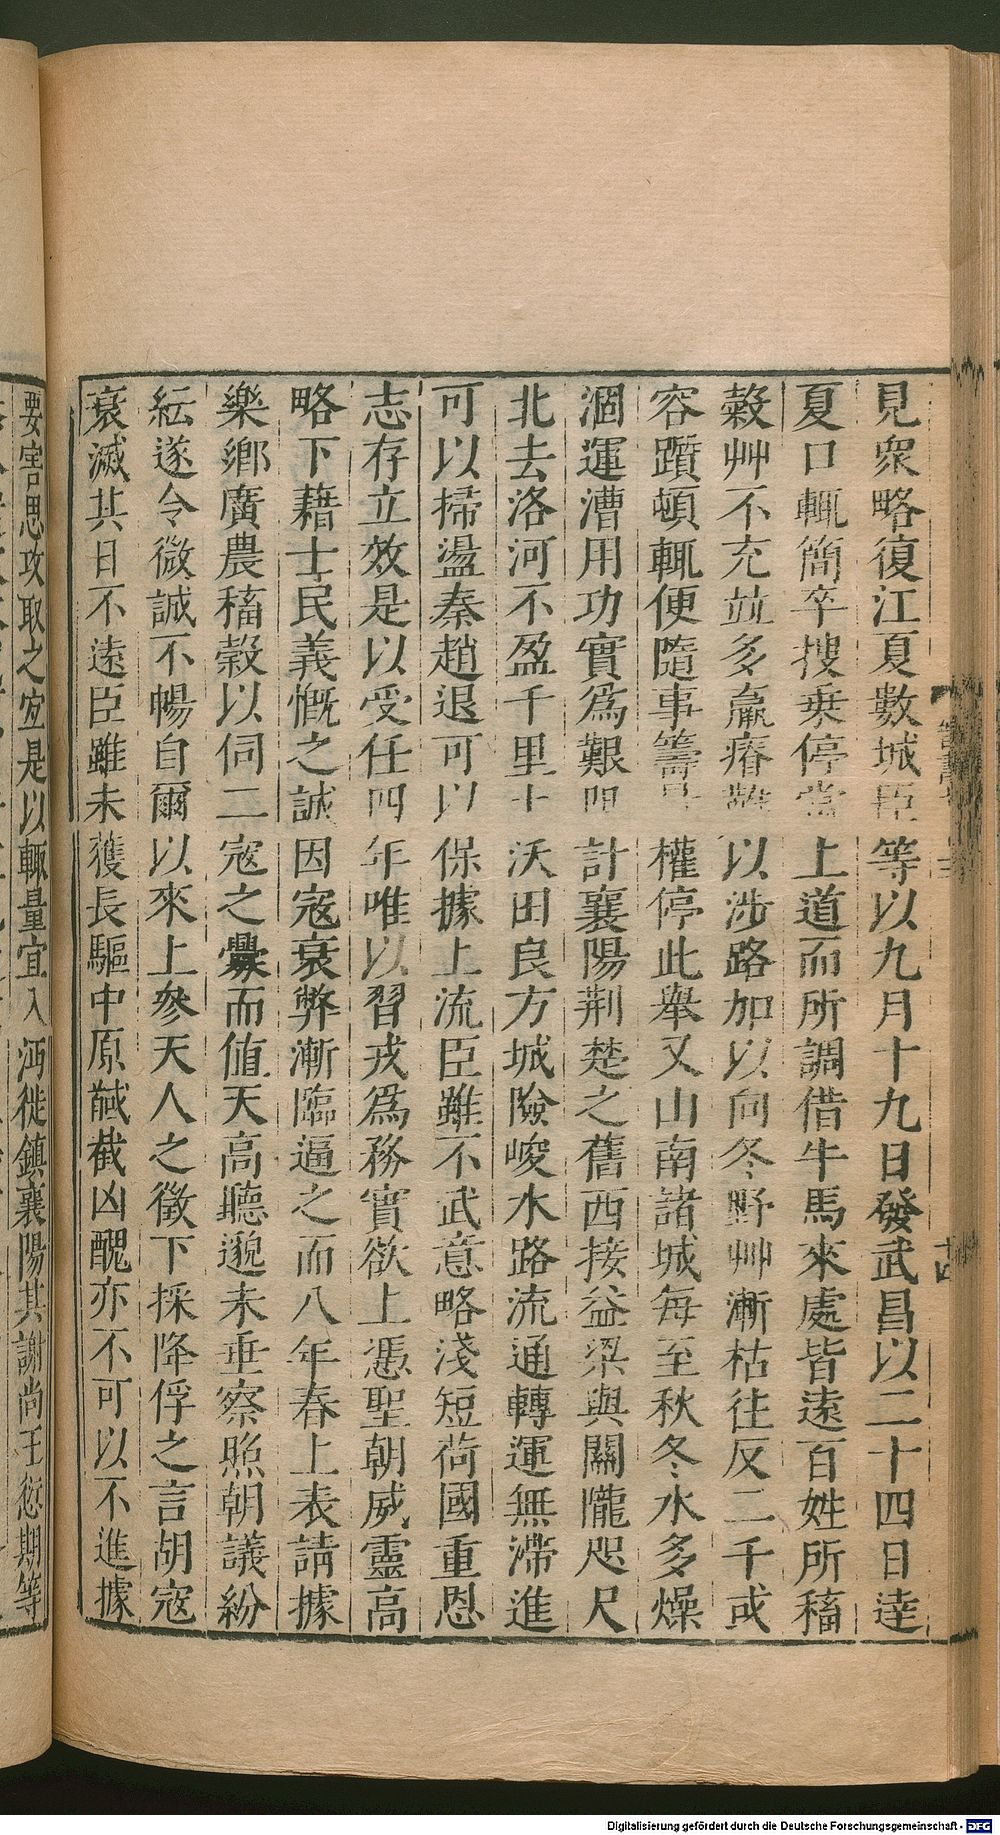 見衆略復江夏數城臣等以九月十九日發武昌以二十四日達
夏口輒簡卒搜乗停當上道而所調借牛馬來處皆遠百姓所穡
穀艸不充並多羸瘠難以涉路加以向冬野艸漸枯往反二千或
容躓頓輒便隨事籌量權停此舉又山南諸城每至秋冬水多燥
涸運漕用功實爲艱阻計襄陽荆楚之舊西接益梁與關隴咫尺
北去洛河不盈千里土沃田良方城險峻水路流通轉運無滯進
可以掃盪秦趙退可以保據上流臣雖不武意略淺短荷國重恩
志存立效是以受任四年唯以習戎爲務實欲上憑聖朝威靈高
略下藉士民義慨之誠因寇衰弊漸臨逼之而八年春上表請據
樂鄉廣農穡穀以伺二寇之釁而値天高聽邈未垂察照朝議紛
紜遂令微誠不暢自爾以來上參天人之徵下採降俘之言胡寇
衰滅其日不遠臣雖未獲長驅中原馘截凶醜亦不可以不進據
要害思攻取之宜是以輒量宜入沔徙鎮襄陽其謝尚王愆期等
Digitalisierung gefördert durch die Deutsche Forschungsgemeinschaft - DFG